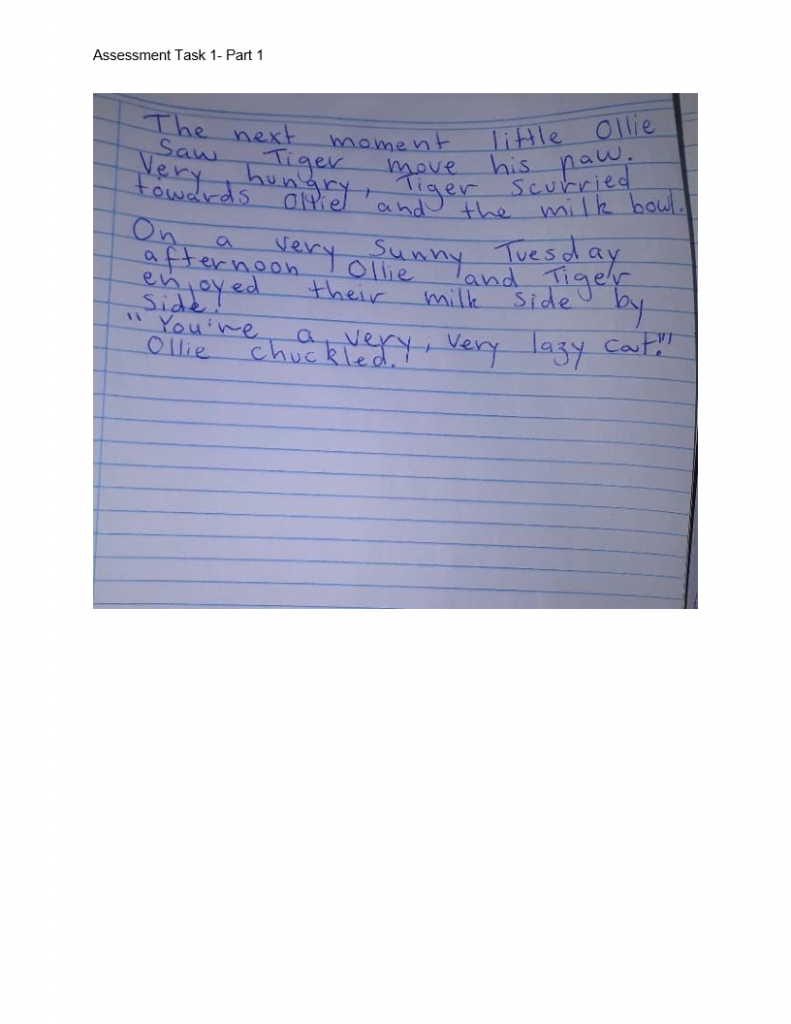 Assessment Task 1- Part 1
The next moment little Ollie
saw Tiger move his paw.
Very hungry, Tiger scurried
towards Ollie and the milk bowl.
On a very sunny Tuesday
afternoon Ollie and Tiger
enjoyed their milk side by
side.
"You're a very, very lazy cat!"
Ollie chuckled.